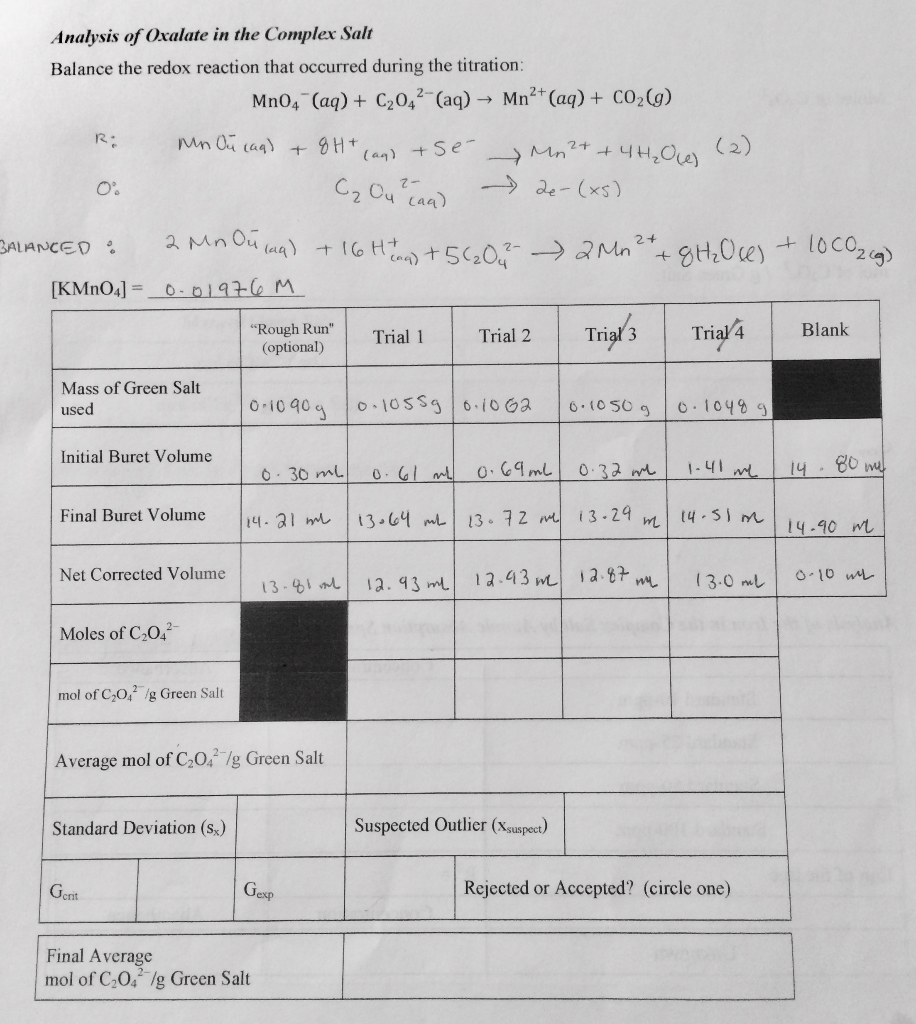 Analysis of Oxalate in the Complex Salt
Balance the redox reaction that occurred during the titration:
MnO₄⁻(aq) + C₂O₄²⁻(aq) → Mn²⁺(aq) + CO₂(g)
R: MnO₄⁻(aq) + 8H⁺(aq) + 5e⁻ → Mn²⁺ + 4H₂O(l) (2)
O: C₂O₄²⁻(aq) → 2e- (x5)
BALANCED : 2 MnO₄⁻(aq) + 16H⁺(aq) + 5C₂O₄²⁻ → 2Mn²⁺ + 8H₂O(l) + 10CO₂(g)
[KMnO₄] = 0.01976 M
"Rough Run" (optional) Trial 1 Trial 2 Trial 3 Trial 4 Blank
Mass of Green Salt used 0.1090g 0.1055g 0.1062 0.1050g 0.1048g
Initial Buret Volume 0.30 ml 0.61 ml 0.69ml 0.32 ml 1.41 ml 14.80 ml
Final Buret Volume 14.21 ml 13.64 ml 13.72 ml 13.29 ml 14.51 ml 14.90 ml
Net Corrected Volume 13.81 ml 12.93 ml 12.93 ml 12.87 ml 13.0 ml 0.10 ml
Moles of C₂O₄²⁻
mol of C₂O₄²⁻/g Green Salt
Average mol of C₂O₄²⁻/g Green Salt
Standard Deviation (sₓ) Suspected Outlier (x_suspect)
G_crit G_exp Rejected or Accepted? (circle one)
Final Average
mol of C₂O₄²⁻/g Green Salt